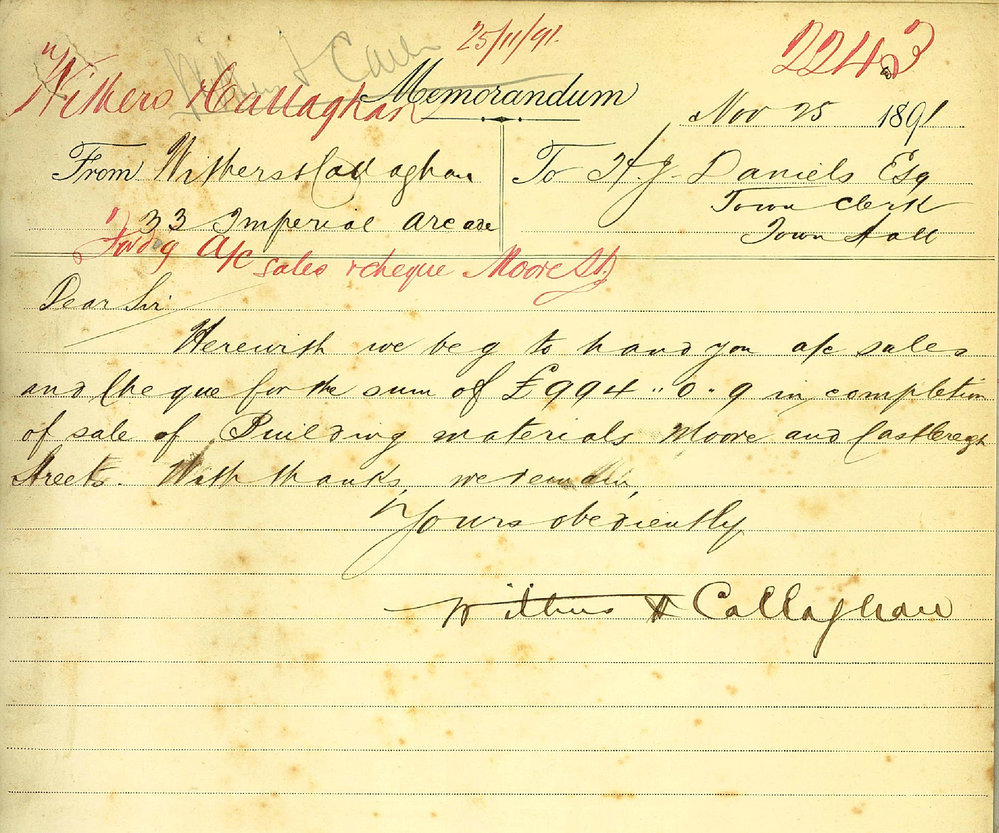 25/11/91.
2243
Withers & Callaghan
Memorandum
Nov 25 1891
From Withers & Callaghan
To H. J. Daniels Esq
33 Imperial Arcade
Town Clerk
Town Hall
Fwdg A/c sales & cheque Moore St.
Dear Sir
Herewith we beg to hand you a/c sales
and Cheque for the sum of £994 .. 0 .. 9 in completion
of sale of Building materials Moore and Castlereagh
Streets. With thanks, we remain,
Yours obediently
Withers & Callaghan